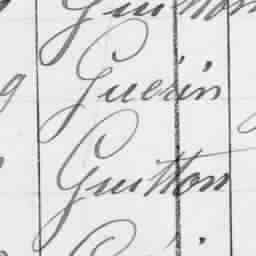 Guitton
Guérin
Guitton